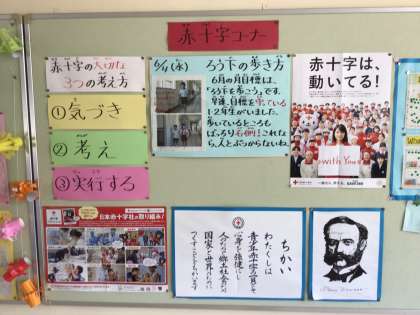 赤十字コーナー
赤十字の大切な
3つの考え方
①気づき
②考え
③実行する
6/11(水)
ろう下の歩き方
6月の月目標は、
「ろう下を歩こう」です。
早速、目標を
1・2年生がいました。
歩いているところも
ばっちり右側!これな
ら、人とぶつからないね。
赤十字は、
動いてる!
with You
日本赤十字社の取り組み!
ちかい
わたくしは
青少年赤十字の一員として
心身を強健にし
人のためと郷土社会のため
国家と世界のために
つくすことをちかいます。